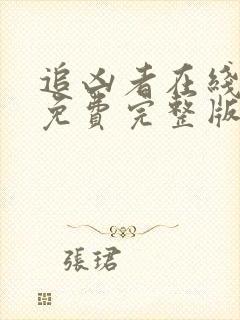 追凶者在綫
免費完整版
張珺